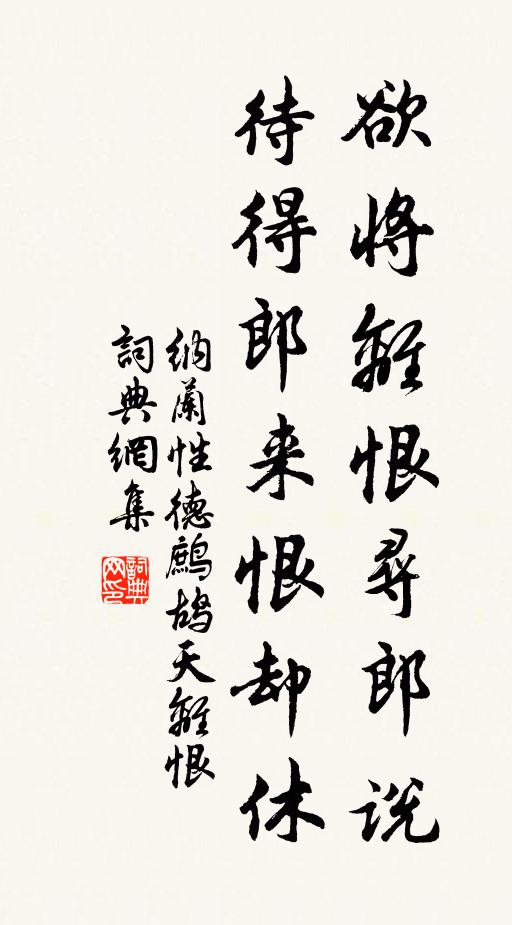 欲将離恨尋郎説
待得郎来恨却休
納蘭性德鷓鴣天離恨
詞典網集
詞典网印